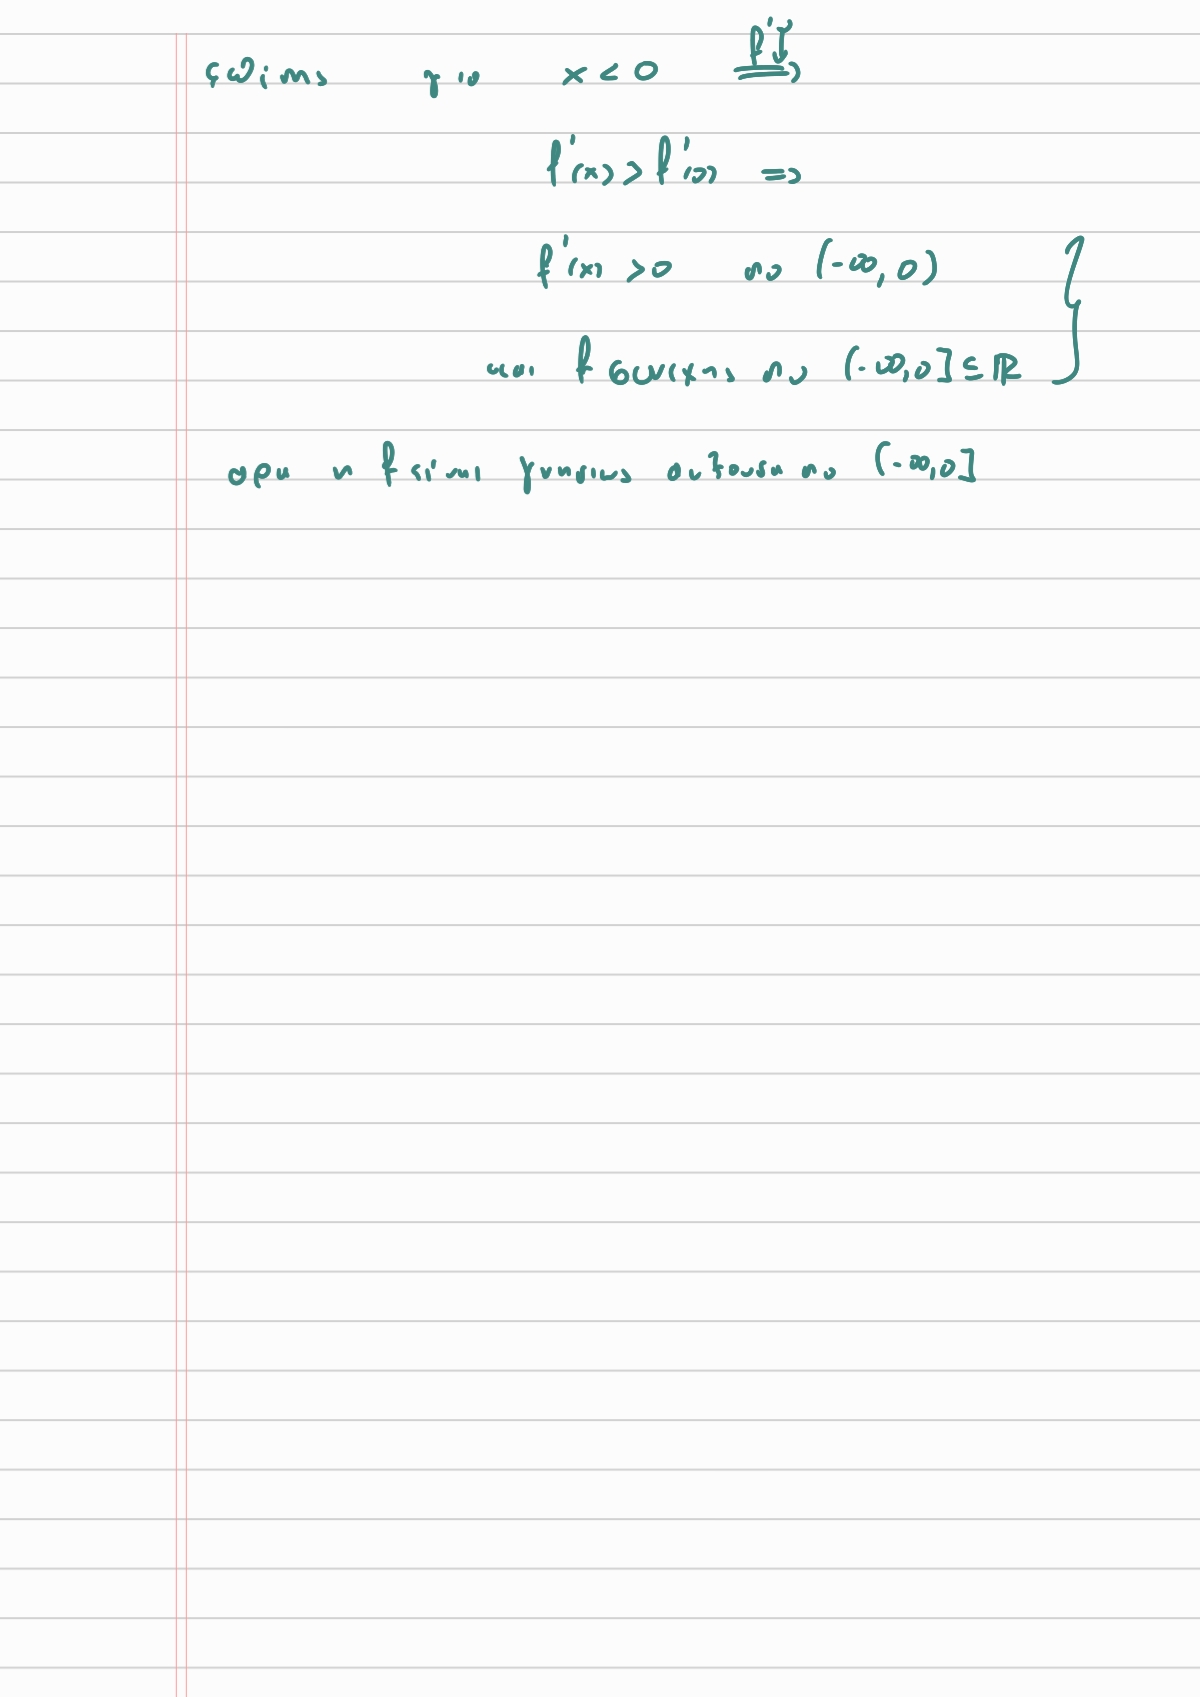 επίσης για x < 0 f'↓ ⟹
f'(x) > f'(0) ⟹
f'(x) > 0 στο (-∞, 0)
και f συνεχης στο (-∞, 0] ⊆ ℝ
αρα η f ειναι γνησιως αυξουσα στο (-∞, 0]